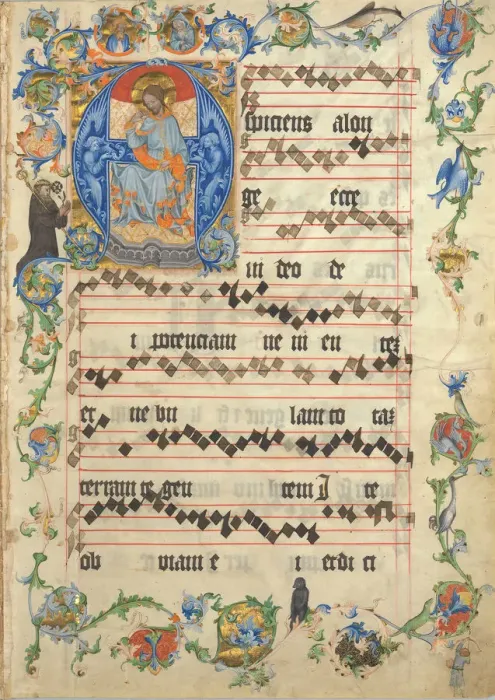 Aspiciens alon
ge ecce
vi deo de
i potenciam ve ni en teʒ
et ne bu lam to taʒ
terram te gen tem I te
ob viam e i et di ci